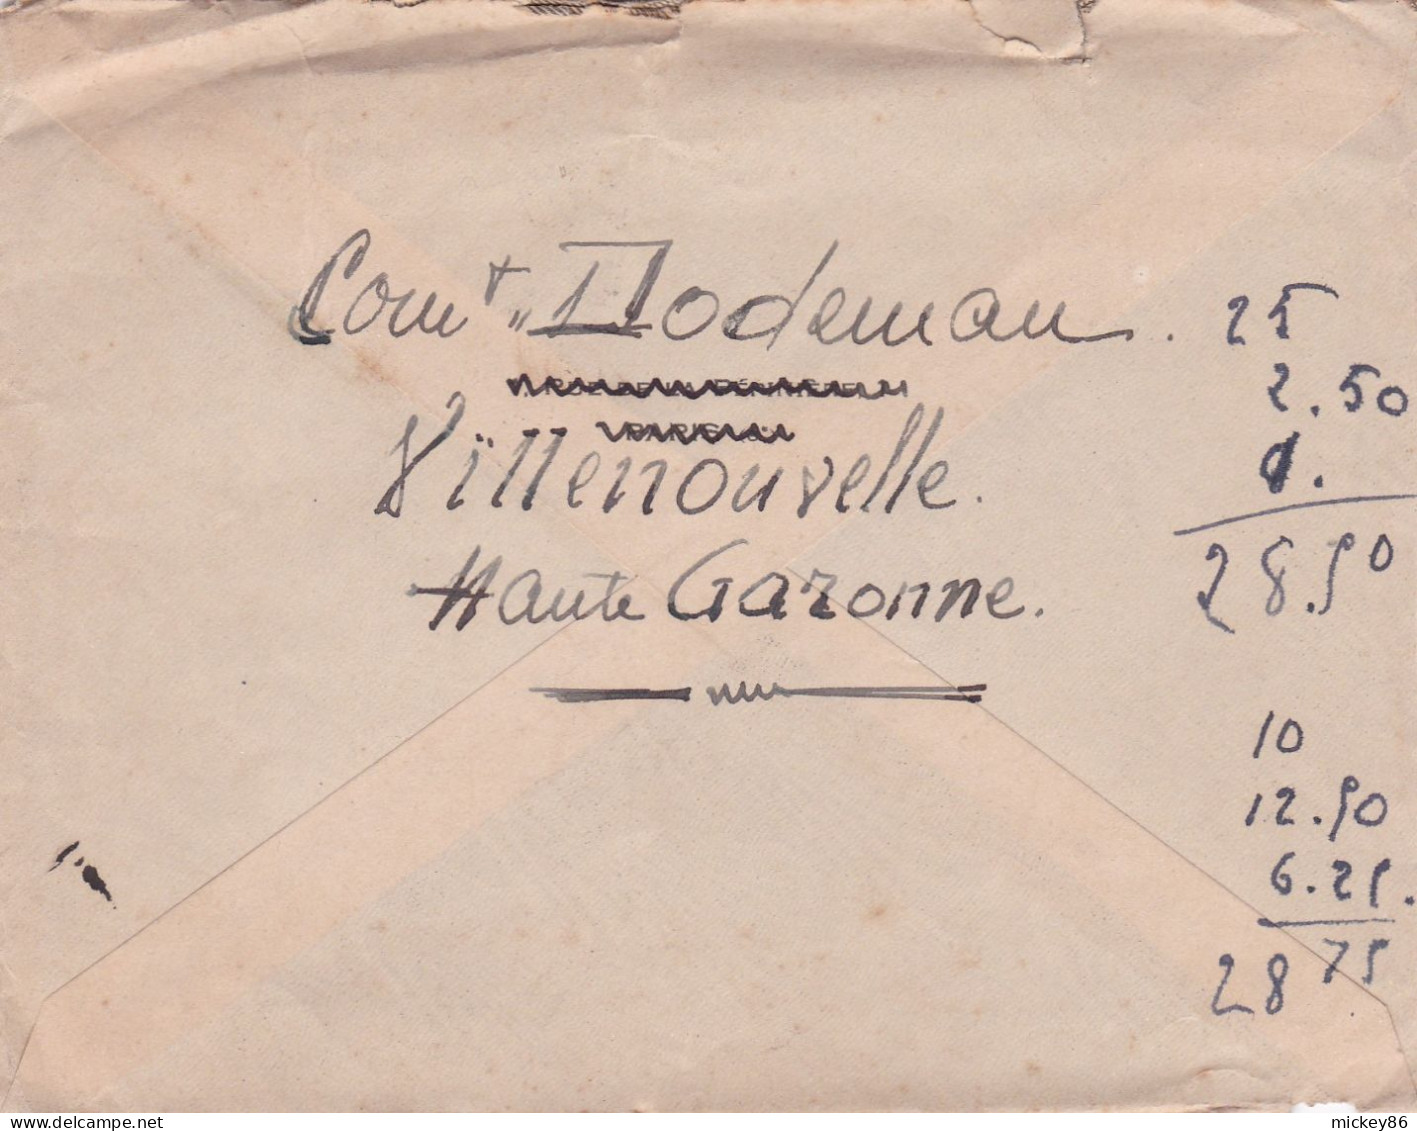 Comt Dodeman.
Villenouvelle.
Haute Garonne.
25
2.50
1.
28.50
10
12.50
6.25.
28 75
www.delcampe.net
mickey86